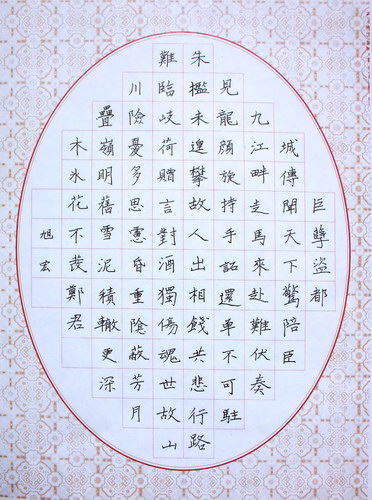 巨孽盜都
城傳聞天下驚陪臣
九江畔走馬來赴難伏奏
見龍顏旋持手詔還單不可駐
朱檻未遑攀故人出相餞共悲行路
難臨岐荷贈言對酒獨傷魂世故山
川險憂多思慮昏重陰蔽芳月
疊嶺明舊雪泥積轍更深
木氷花不發鄭君
旭宏